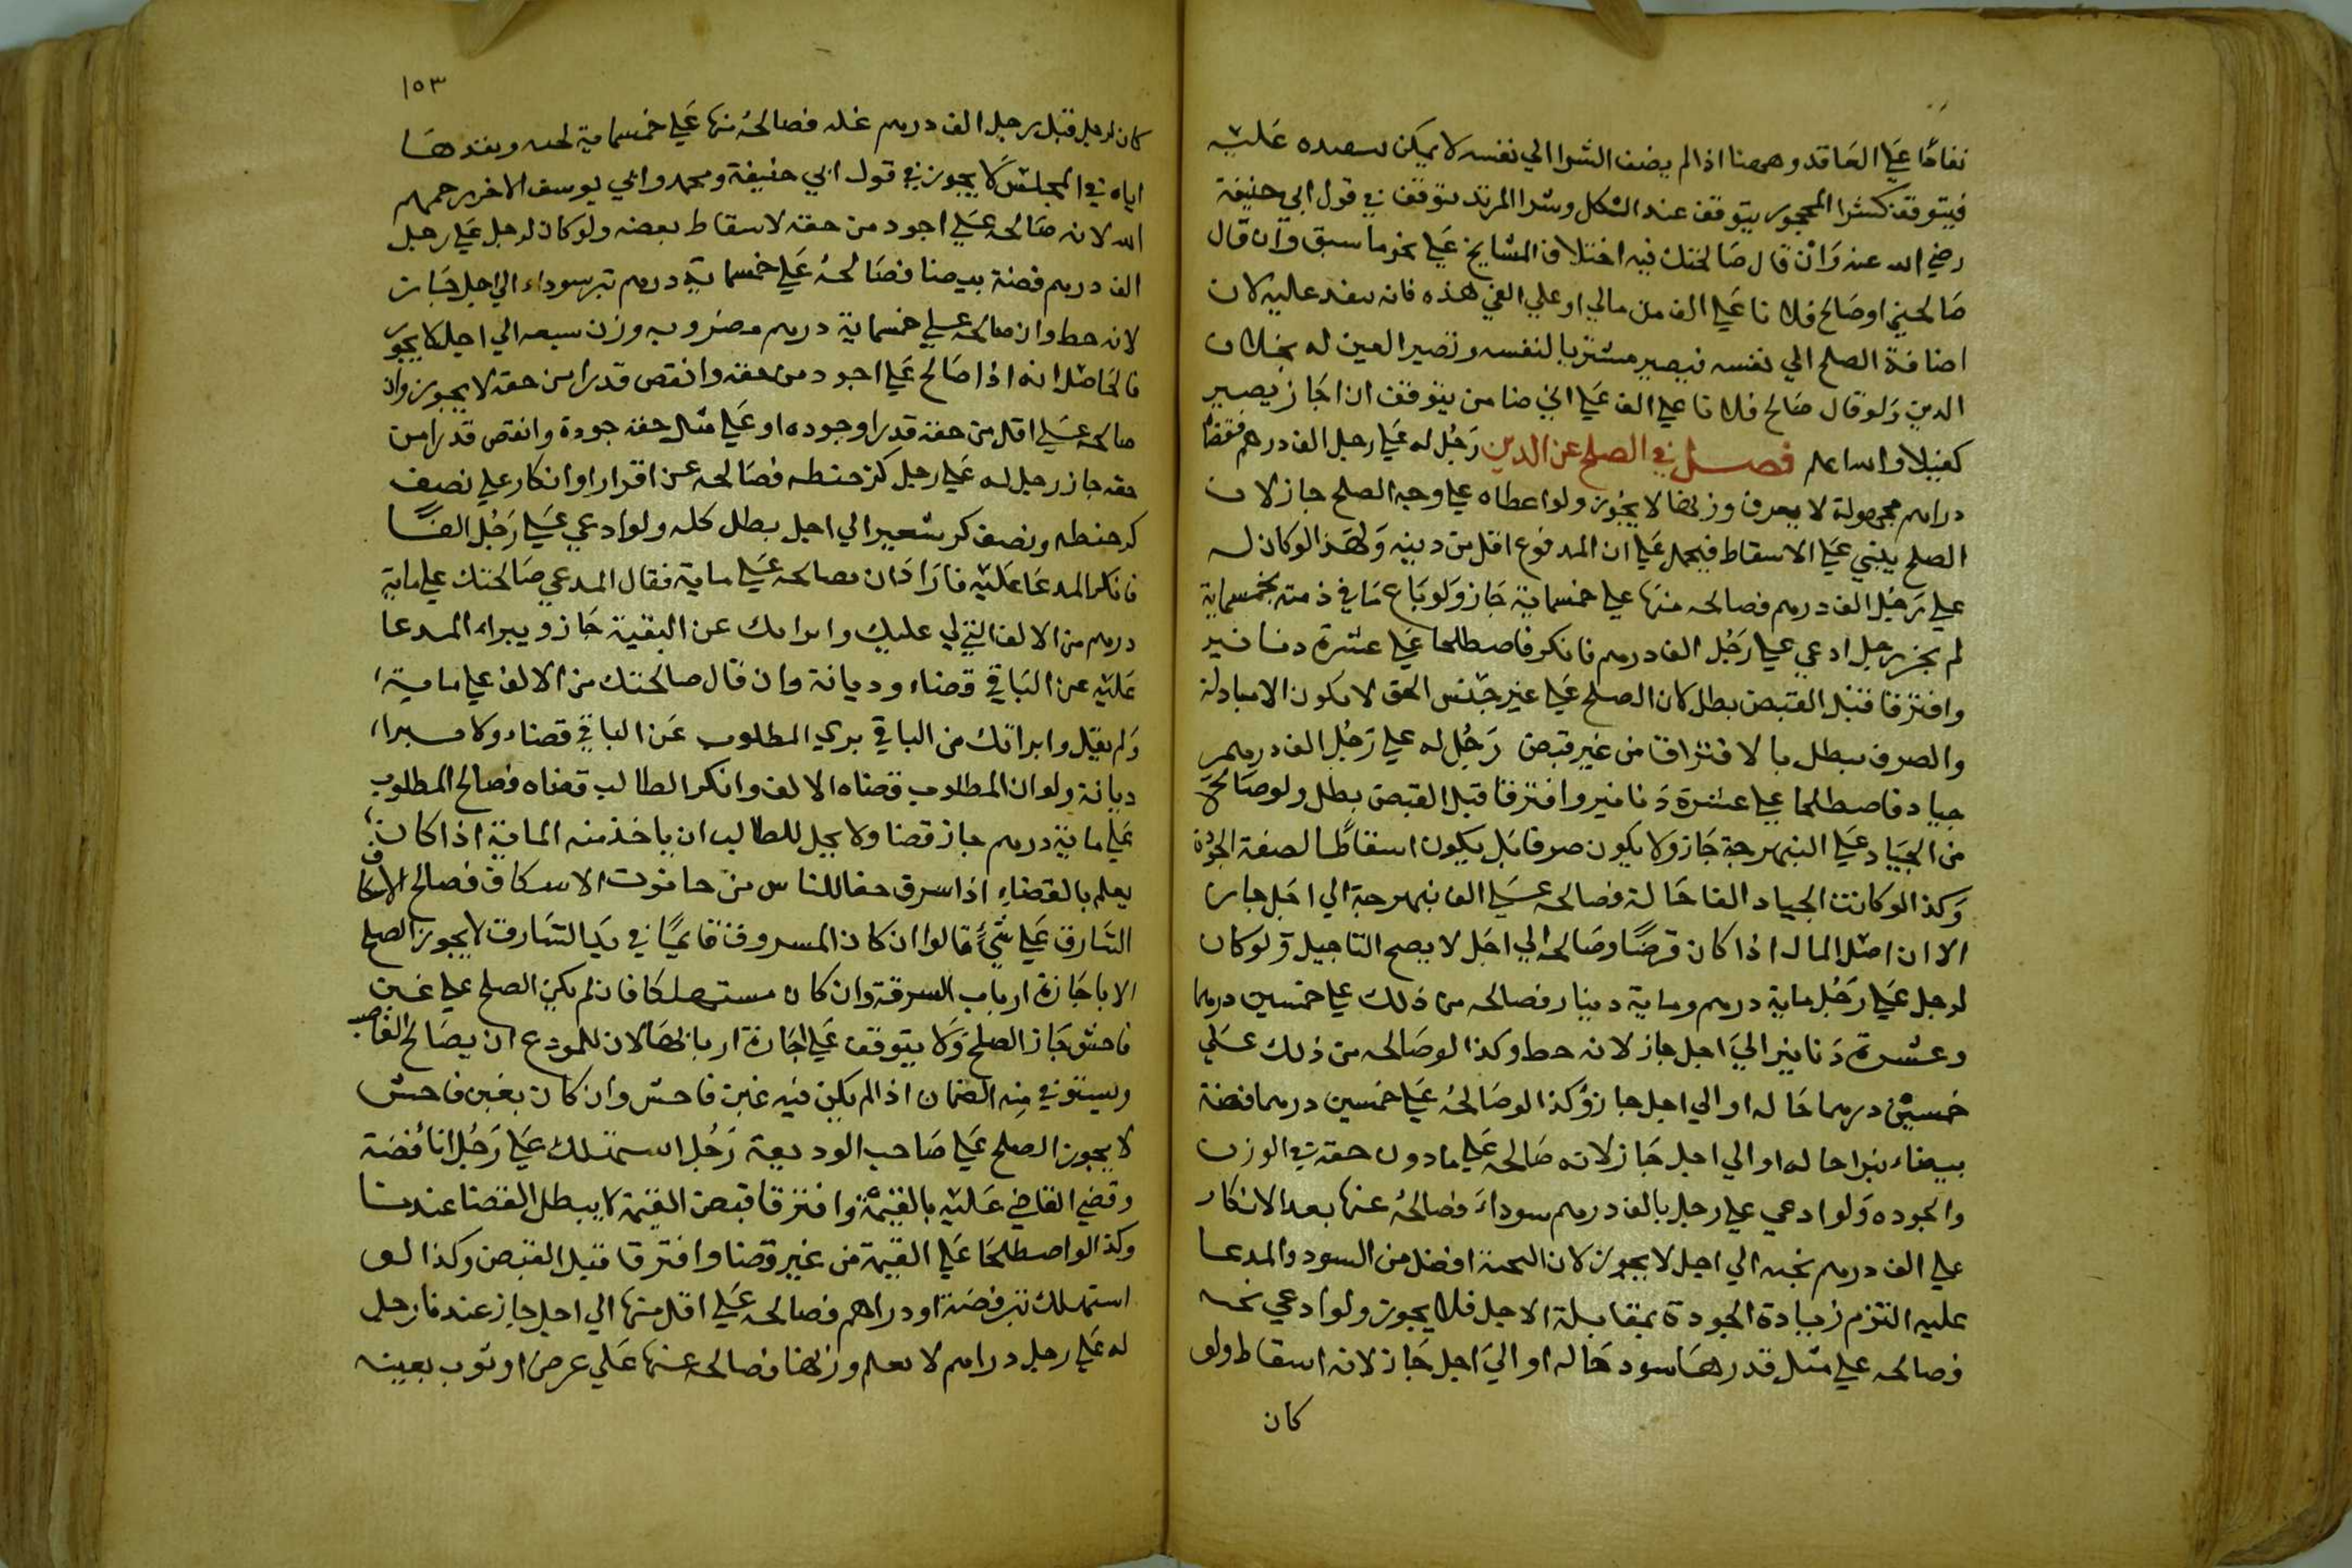 نفاذا علي العاقد وههنا اذا لم يضف الشرا الي نفسه لا يمكن تنفيده عليه
فيتوقف كشرا المحجور يتوقف عند الكل وشرا المرتد يتوقف في قول ابي حنيفة
رضي الله عنه وان قال صالحتك فيه اختلاف المشايخ علي نحو ما سبق وان قال
صالحني او صالح فلانا علي الف من مالي او علي الفي هذه فانه ينفد عليه لان
اضافة الصلح الي نفسه فيصير مشتريا لنفسه وتصير العين له بخلاف
الدين ولو قال صالح فلانا علي الف علي اني ضامن يتوقف ان اجاز يصير
كفيلا والله اعلم فصل في الصلح عن الدين رجل له علي رجل الف درهم فقضاه
دراهم مجهولة لا يعرف وزنها لا يجوز ولو اعطاه علي وجه الصلح جاز لان
الصلح يبني علي الاسقاط فيحمل علي ان المدفوع اقل من دينه ولهذا لو كان له
علي رجل الف درهم فصالحه منها علي خمسماية جاز ولو باع ما في ذمته بخمسماية
لم يجز رجل ادعي علي رجل الف درهم فانكر فاصطلحا علي عشرة دنانير
وافترقا قبل القبض بطل كان الصلح علي غير جنس الحق لا يكون الا مبادلة
والصرف يبطل بالافتراق من غير قبض رجل له علي رجل الف درهم
جياد فاصطلحا علي عشرة دنانير وافترقا قبل القبض بطل ولو صالحه
من الجياد علي النبهرجة جاز ولا يكون صرفا بل يكون اسقاطا لصفة الجودة
وكذا لو كانت الجياد الفا حالة فصالحه علي الف نبهرجة الي اجل جاز
الا ان اصل المال اذا كان قرضا وصالحه الي اجل لا يصح التاجيل ولو كان
لرجل علي رجل ماية درهم وماية دينار فصالحه من ذلك علي خمسين درهما
وعشرة دنانير الي اجل جاز لانه حط وكذا لو صالحه من ذلك علي
خمسين درهما حاله او الي اجل جاز وكذا لو صالحه علي خمسين درهما فضة
بيضاء تبرا حاله او الي اجل جاز لانه صالحه علي ما دون حقه في الوزن
والجوده ولو ادعي علي رجل بالف درهم سوداء فصالحه عنها بعد الانكار
علي الف درهم نجيه الي اجل لا يجوز لان النجية افضل من السود والمدعا
عليه التزم زيادة الجودة بمقابلة الاجل فلا يجوز ولو ادعي نجيه
فصالحه علي مثل قدرها سود حاله او الي اجل جاز لانه اسقاط ولو
كان
١٥٣
كان لرجل قبل رجل الف درهم غله فصالحه منها علي خمسماية نجيه ونقدها
اياه في المجلس لا يجوز في قول ابي حنيفة ومحمد وابي يوسف الاخر رحمهم
الله لانه صالحه علي اجود من حقه لاسقاط بعضه ولو كان لرجل علي رجل
الف درهم فضة بيضا فصالحه علي خمسماية درهم تبر سوداء الي اجل جاز
لانه حط وان صالحه علي خمسماية درهم مضروبه وزن سبعه الي اجل لا يجوز
فالحاصل انه اذا صالح علي اجود من حقه وانقص قدرا من حقه لا يجوز وان
صالحه علي اقل من حقه قدرا وجوده او علي مثل حقه جودة وانقص قدرا من
حقه جاز رجل له علي رجل كر حنطه فصالحه عن اقرار او انكار علي نصف
كر حنطه ونصف كر شعير الي اجل بطل كله ولو ادعي علي رجل الفا
فانكر المدعا عليه فاراد ان يصالحه علي ماية فقال المدعي صالحتك علي ماية
درهم من الالف التي لي عليك وابراتك عن البقية جاز ويبراء المدعا
عليه عن الباقي قضاء وديانة وان قال صالحتك من الالف علي ماية
ولم يقل وابراتك من الباقي بري المطلوب عن الباقي قضاء ولا يبرا
ديانة ولو ان المطلوب قضاه الالف وانكر الطالب قضاه فصالح المطلوب
علي ماية درهم جاز قضا ولا يحل للطالب ان ياخذ منه الماية اذا كان
يعلم بالقضاء اذا سرق خفا للناس من حانوت الاسكاف فصالح الاسكاف
السارق علي شيء قالوا ان كان المسروق قايما في يد السارق لا يجوز الصلح
الا باجازة ارباب السرقة وان كان مستهلكا فان لم يكن الصلح علي غبن
فاحش جاز الصلح ولا يتوقف علي اجازة اربابها لان للمودع ان يصالح الغاصب
ويستوفي منه الضمان اذا لم يكن فيه غبن فاحش وان كان بغبن فاحش
لا يجوز الصلح علي صاحب الوديعة رجل استهلك علي رجل اناء فضة
وقضي القاضي عليه بالقيمة وافترقا قبض القيمة لا يبطل القضا عندنا
وكذا لو اصطلحا علي القيمة من غير قضا وافترقا قبل القبض وكذا لو
استهلك تبر فضة او دراهم فصالحه علي اقل منها الي اجل جاز عندنا رجل
له علي رجل دراهم لا يعلم وزنها فصالحه عنها علي عرض او ثوب بعينه